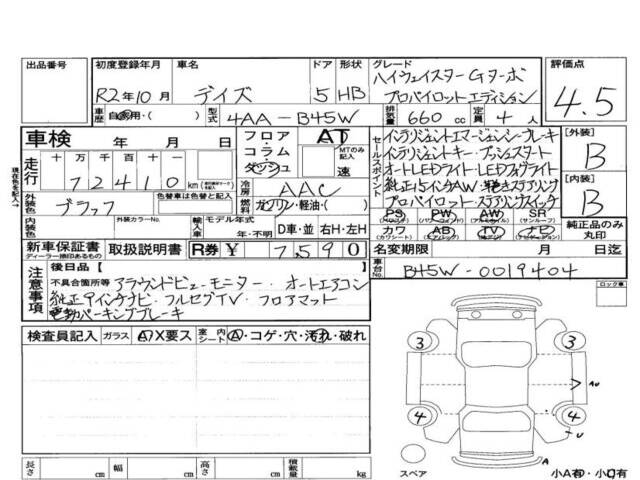 出品番号
初度登録年月 車名 ドア 形状 グレード 評価点
R2年10月 デイズ 5 HB ハイウェイスターGターボ
プロパイロットエディション 4.5
車歴 自家用・( ) 型式 4AA-B45W 排気量 660 cc 定員 4 人
車検 年 月 日
フロア・コラム・ダッシュ
AT
MTのみ記入
速
走行 十 万 千 百 十 一
72410 km
冷房 AAC
外装色 ブラック 色替車は色替前色
燃料 ガソリン・軽油・( )
内装色 外装カラーNo. 輸入車 モデル年式 年・不明 D車・並 右H・左H
セールスポイント
インテリジェントエマージェンシーブレーキ
インテリジェントキー・プッシュスタート
オートLEDライト・LEDフォグライト
純正15インチAW・革巻ステアリング
プロパイロット・ステアリングスイッチ
PS PW AW SR
カワ AB TV ナビ
[外装] B
[内装] B
純正品のみ丸印
新車保証書 取扱説明書 R券 ¥ 7590
ディーラー捺印あるもの
名変期限 月 日迄
車台No. B45W-0019404
注意事項
後日品【 】
不具合箇所等 アラウンドビューモニター・オートエアコン
純正9インチナビ・フルセグTV・フロアマット
電動パーキングブレーキ
ロック車
検査員記入 ガラス A・X要ス 室内シート A・コゲ・穴・汚れ・破れ
3 3
4 4
A
U
スペア
小A有・小U有
長さ cm 幅 cm 高さ cm 積載量 kg
現在色を記入→